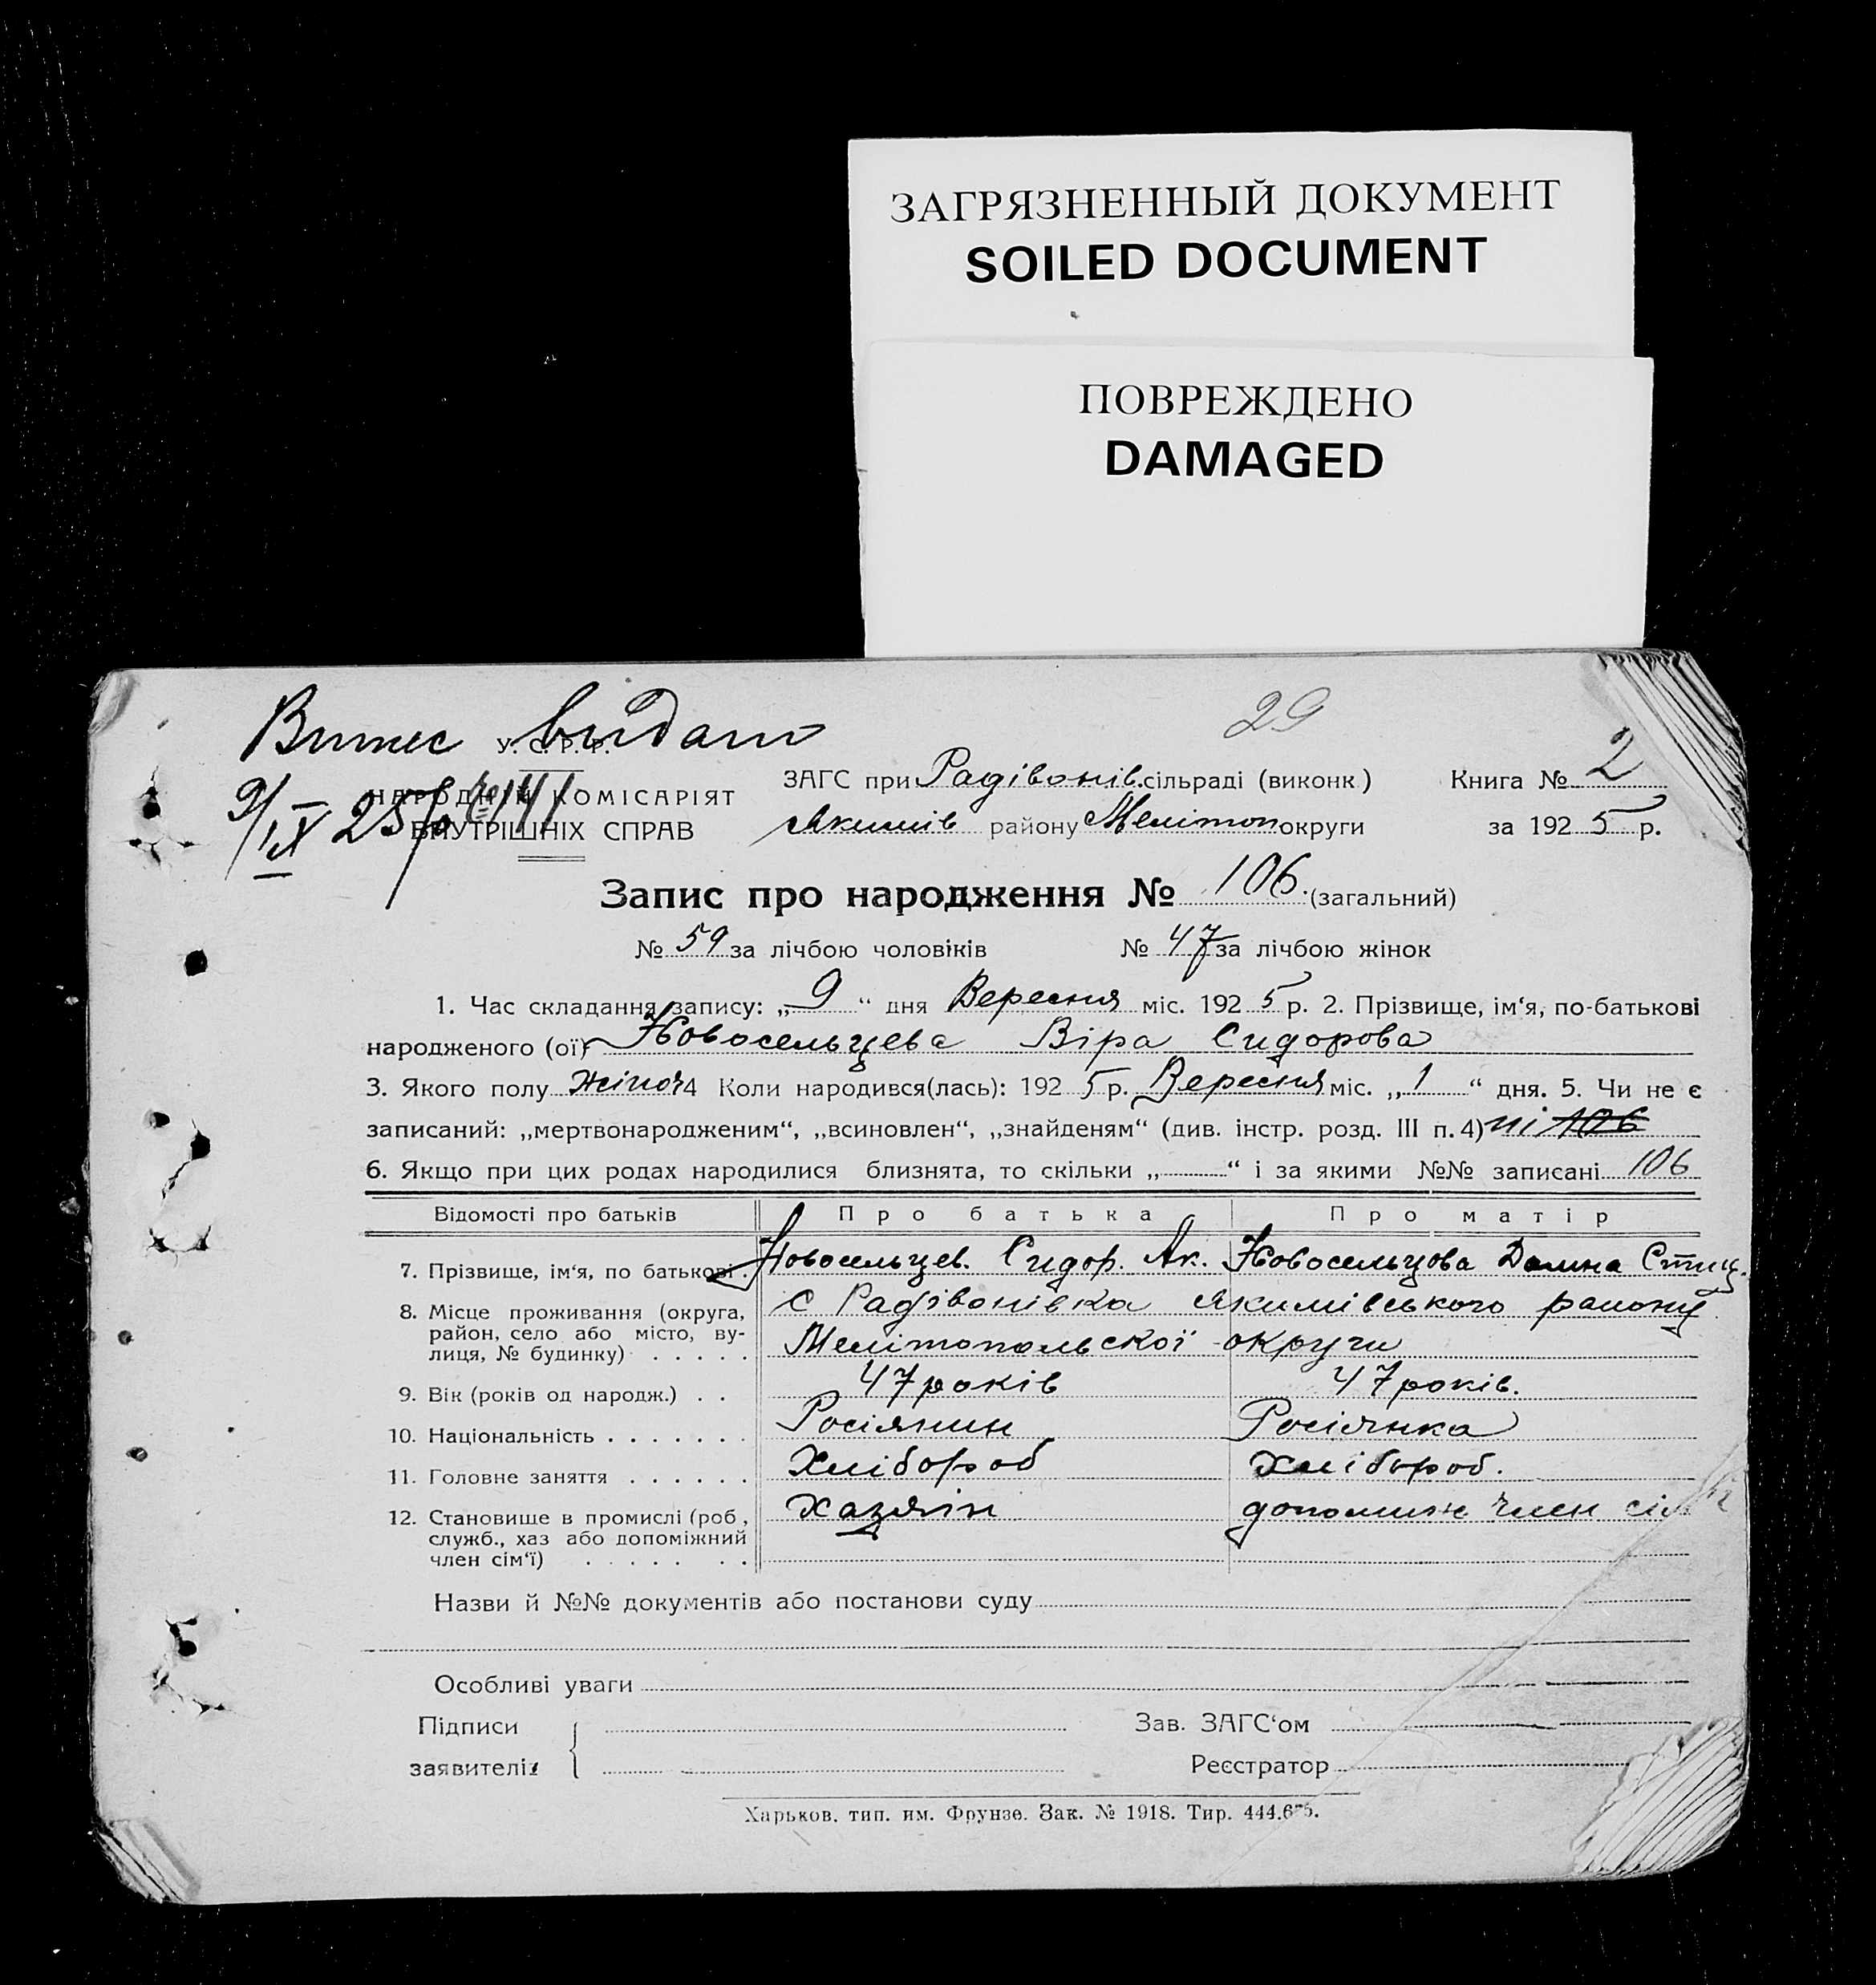 ЗАГРЯЗНЕННЫЙ ДОКУМЕНТ
SOILED DOCUMENT
ПОВРЕЖДЕНО
DAMAGED
29
видано
У. С. Р. Р.
НАРОДНІЙ КОМІСАРІЯТ
ВНУТРІШНІХ СПРАВ
9/IX 25 р
ЗАГС при Радівонів. сільраді (виконк) Книга № 2
Якимів району Мелітоп округи за 1925 р.
Запис про народження № 106. (загальний)
№ 59 за лічбою чоловіків № 47 за лічбою жінок
1. Час складання запису: „9“ дня Вересня міс. 1925 р. 2. Прізвище, ім‘я, по-батькові
народженого (ої) Новосельцева Віра Сидорова
3. Якого полу жіноч 4 Коли народився(лась): 1925 р. Вересня міс. „1“ дня. 5. Чи не є
записаний: „мертвонародженим“, „всиновлен“, „знайденям“ (див. інстр. розд. III п. 4) ні 106
6. Якщо при цих родах народилися близнята, то скільки „ “ і за якими №№ записані 106
Відомості про батьків Про батька Про матір
7. Прізвище, ім‘я, по батькові . Новосельцев. Сидор. Ак. Новосельцова
8. Місце проживання (округа, с Радівонівка Якимівського району
район, село або місто, ву-
лиця, № будинку) . . . . . Мелітопольскої округи
9. Вік (років од народж.) . . 47 років 47 років.
10. Національність . . . . . . . Росіянин Росіянка
11. Головне заняття . . . . . . Хлібороб Хлібороб.
12. Становище в промислі (роб, Хазяін допоміж член сім
служб., хаз або допоміжний
член сім‘ї) . . . . . . .
Назви й №№ документів або постанови суду
Особливі уваги
Підписи Зав. ЗАГС‘ом
заявителів Реєстратор
Харьков. тип. им. Фрунзе. Зак. № 1918. Тир.